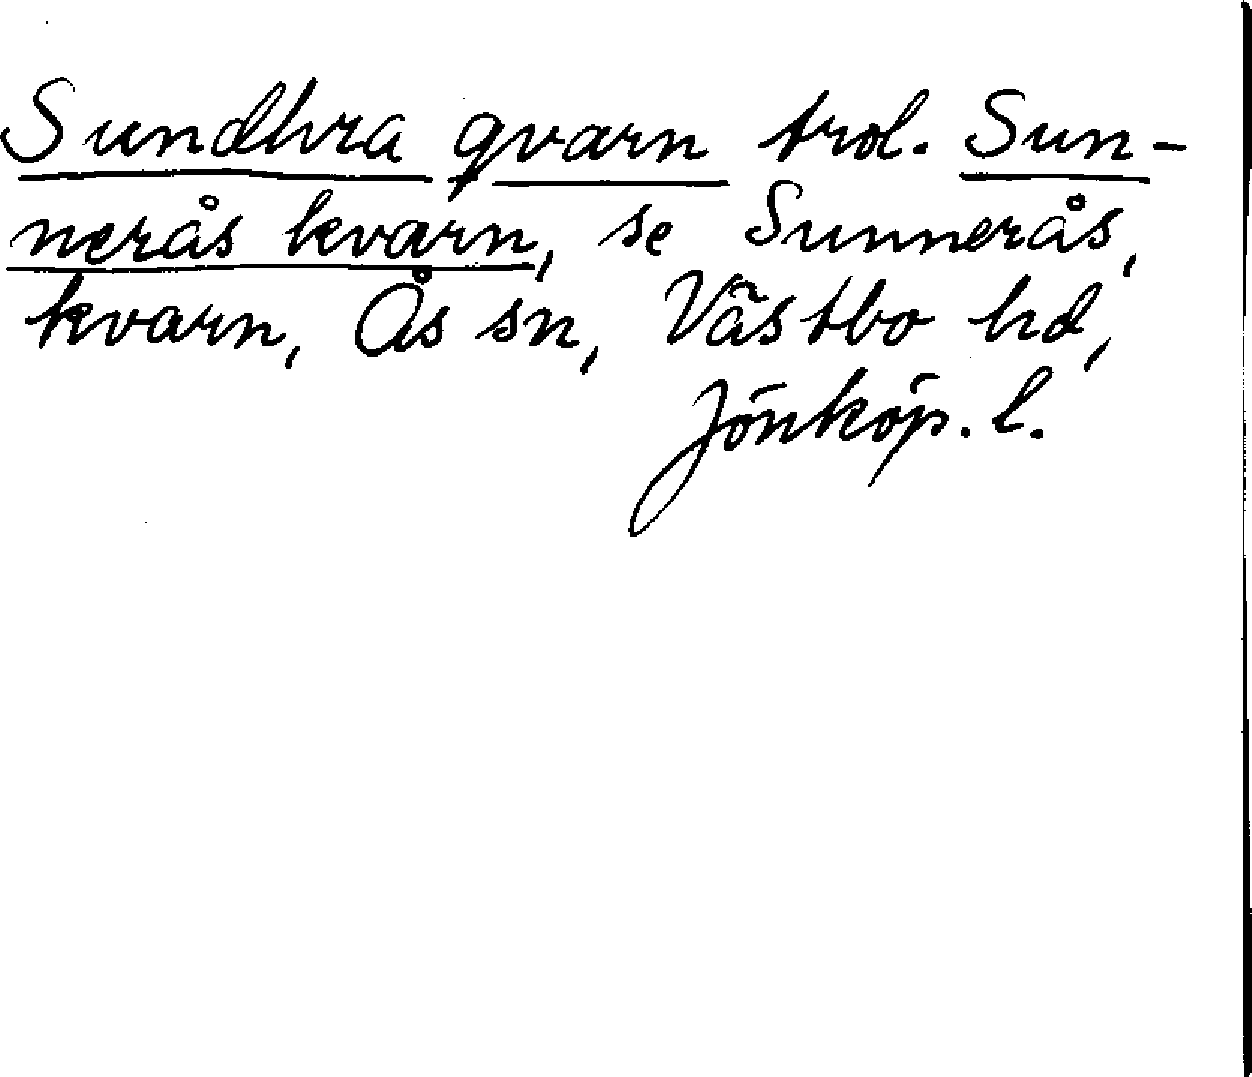 Sundhra qvarn trol. Sun-
nerås kvarn, se Sunnerås,
kvarn, Ås sn, Västbo hd,
Jönköp. l.